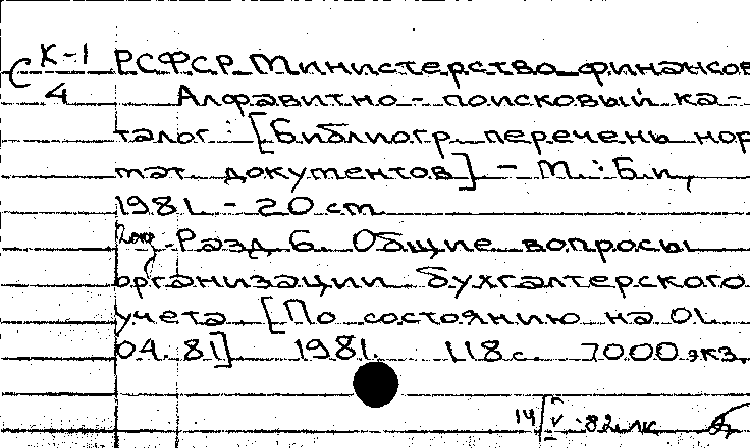 С К-1 РСФСР. Министерство финансов
4 Алфавитно-поисковый ка-
талог: [Библиогр. перечень нор
мат. документов] - М.: Б.и,
1981. - 20 см
Разд. 6. Общие вопросы
организации бухгалтерского
учета. [По состоянию на 01.
04. 81]. 1981. 118 с. 7000 экз.
14/V-82